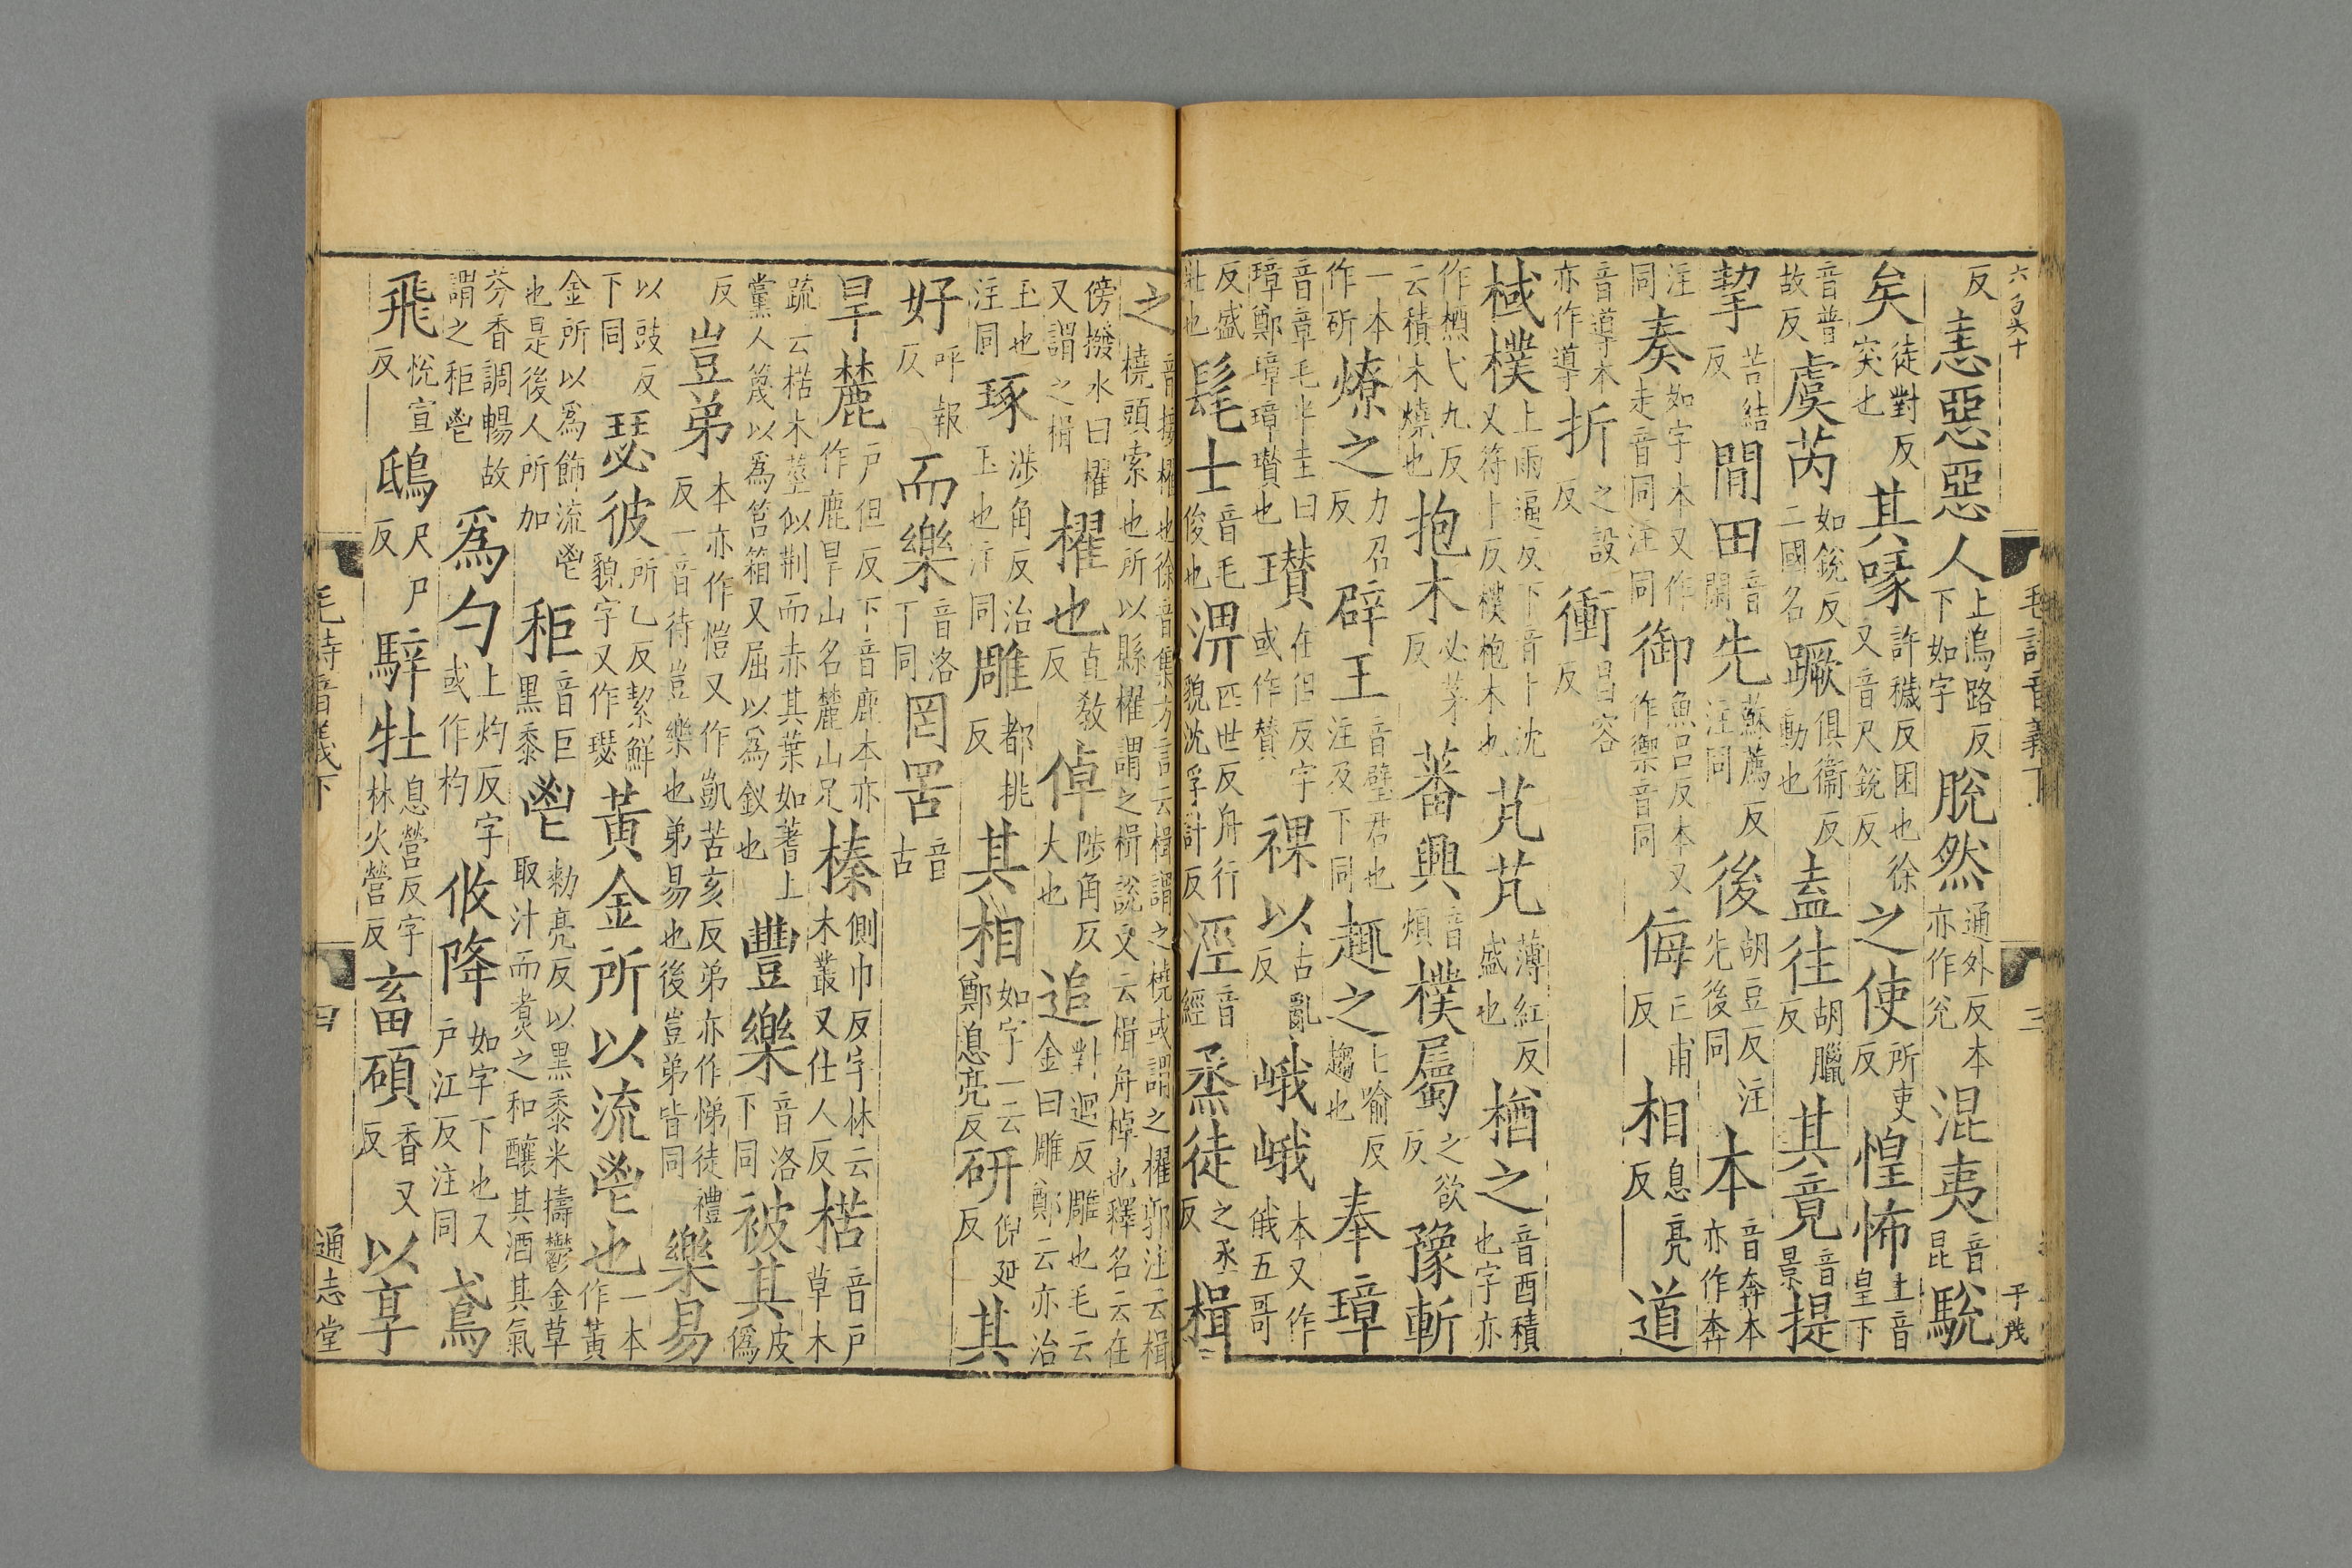 六百六十
毛詩音義下
三
于茂
反恚惡惡人上烏路反下如字脫然通外反本亦作兊混夷音昆駾
矣徒對反突也其喙許穢反困也徐又音尺銳反之使所吏反惶怖上音皇下
音普故反虞芮如銳反二國名蹶俱衞反動也盍往胡臘反其竟音景提
挈苦結反閒田音閑先蘇薦反注同後胡豆反注先後同本音奔本亦作奔
注同奏如字本又作走音同注同御魚呂反本又作禦音同侮亡甫反相息亮反道
音導本亦作導折之設反衝昌容反
棫樸上雨逼反下音卜沈又符卜反樸枹木也芃芃薄紅反盛也槱之音酉積也字亦
作楢弋九反云積木燒也抱木必茅反蕃興音煩樸屬之欲反豫斬
一本作斫燎之力召反辟王音璧君也注及下同趣之七喻反趨也奉璋
音章毛半圭曰璋鄭璋璋瓚也瓚在但反字或作贊祼以古亂反峨峨本又作俄五哥
反盛壯也髦士音毛俊也淠匹世反舟行貌沈孚計反涇音經烝徒之丞反楫
之音接櫂也徐音集方言云楫謂之橈或謂之櫂郭注云楫橈頭索也所以縣櫂謂之楫說文云楫舟棹也釋名云在
傍撥水曰櫂又謂之楫櫂也直敎反倬陟角反大也追對迴反雕也毛云金曰雕鄭云亦治
玉也注同琢涉角反治玉也注同雕都挑反其相如字一云鄭息亮反研倪延反其
好呼報反而樂音洛下同罔罟音古
旱麓戶但反下音鹿本亦作鹿旱山名麓山足榛側巾反字林云木叢又仕人反楛音戶草木
疏云楛木莖似荆而赤其葉如蓍上黨人篾以爲筥箱又屈以爲釵也豐樂音洛下同被其皮僞
反豈弟本亦作愷又作凱苦亥反弟亦作悌徒禮反一音待豈樂也弟易也後豈弟皆同樂易
以豉反下同瑟彼所乙反絜鮮貌字又作璱黃金所以流鬯也一本作黃
金所以爲飾流鬯也是後人所加秬音巨黑黍鬯勑亮反以黑黍米擣鬱金草取汁而煑之和釀其酒其氣
芬香調暢故謂之秬鬯爲勺上灼反字或作杓攸降如字下也又戶江反注同鳶
飛恱宣反鴟尺尸反騂牡息營反字林火營反畜碩香又反以享
毛詩音義下
四
通志堂